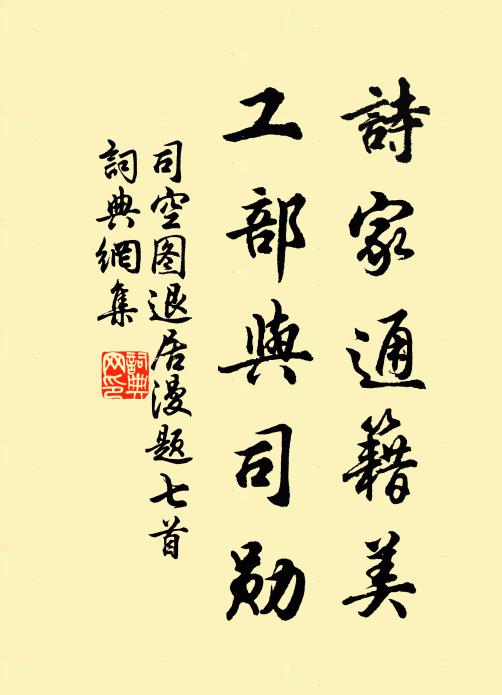 詩家通籍美
工部與司勋
司空图退居漫题七首
詞典網集
詞典网印